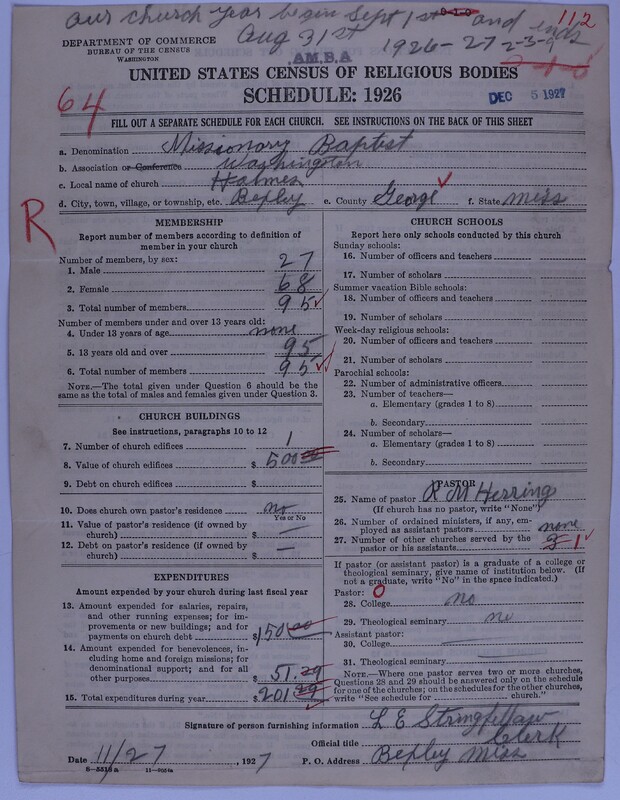 our church year begin Sept 1st and ends 112
Aug 31st 1926-27 2-3-9
DEPARTMENT OF COMMERCE
BUREAU OF THE CENSUS
WASHINGTON
A.M.B.A
UNITED STATES CENSUS OF RELIGIOUS BODIES
SCHEDULE: 1926
64
DEC 5 1927
FILL OUT A SEPARATE SCHEDULE FOR EACH CHURCH. SEE INSTRUCTIONS ON THE BACK OF THIS SHEET
a. Denomination Missionary Baptist
b. Association or Conference Washington
c. Local name of church Holmes
d. City, town, village, or township, etc. Bexley e. County George f. State Miss
R
MEMBERSHIP
Report number of members according to definition of
member in your church
Number of members, by sex:
1. Male 27
2. Female 68
3. Total number of members 95
Number of members under and over 13 years old:
4. Under 13 years of age none
5. 13 years old and over 95
6. Total number of members 95
NOTE.—The total given under Question 6 should be
the same as the total of males and females given under Question 3.
CHURCH BUILDINGS
See instructions, paragraphs 10 to 12
7. Number of church edifices 1
8. Value of church edifices $ 500
9. Debt on church edifices $
10. Does church own pastor's residence? no
Yes or No
11. Value of pastor's residence (if owned by
church) $ —
12. Debt on pastor's residence (if owned by
church) $ —
EXPENDITURES
Amount expended by your church during last fiscal year
13. Amount expended for salaries, repairs,
and other running expenses; for im-
provements or new buildings; and for
payments on church debt $ 150.00
14. Amount expended for benevolences, in-
cluding home and foreign missions; for
denominational support; and for all
other purposes $ 51.29
15. Total expenditures during year $ 201.29
CHURCH SCHOOLS
Report here only schools conducted by this church
Sunday schools:
16. Number of officers and teachers
17. Number of scholars
Summer vacation Bible schools:
18. Number of officers and teachers
19. Number of scholars
Week-day religious schools:
20. Number of officers and teachers
21. Number of scholars
Parochial schools:
22. Number of administrative officers
23. Number of teachers—
a. Elementary (grades 1 to 8)
b. Secondary
24. Number of scholars—
a. Elementary (grades 1 to 8)
b. Secondary
PASTOR
25. Name of pastor R M Herring
(If church has no pastor, write "None")
26. Number of ordained ministers, if any, em-
ployed as assistant pastors none
27. Number of other churches served by the
pastor or his assistants 1
If pastor (or assistant pastor) is a graduate of a college or
theological seminary, give name of institution below. (If
not a graduate, write "No" in the space indicated.)
Pastor: 0
28. College no
29. Theological seminary no
Assistant pastor:
30. College
31. Theological seminary
NOTE.—Where one pastor serves two or more churches,
Questions 28 and 29 should be answered only on the schedule
for one of the churches; on the schedules for the other churches,
write "See schedule for church."
Signature of person furnishing information L E Stringfellow
Official title Clerk
Date 11/27, 1927 P. O. Address Bexley Miss
8—5513a 11—9054a